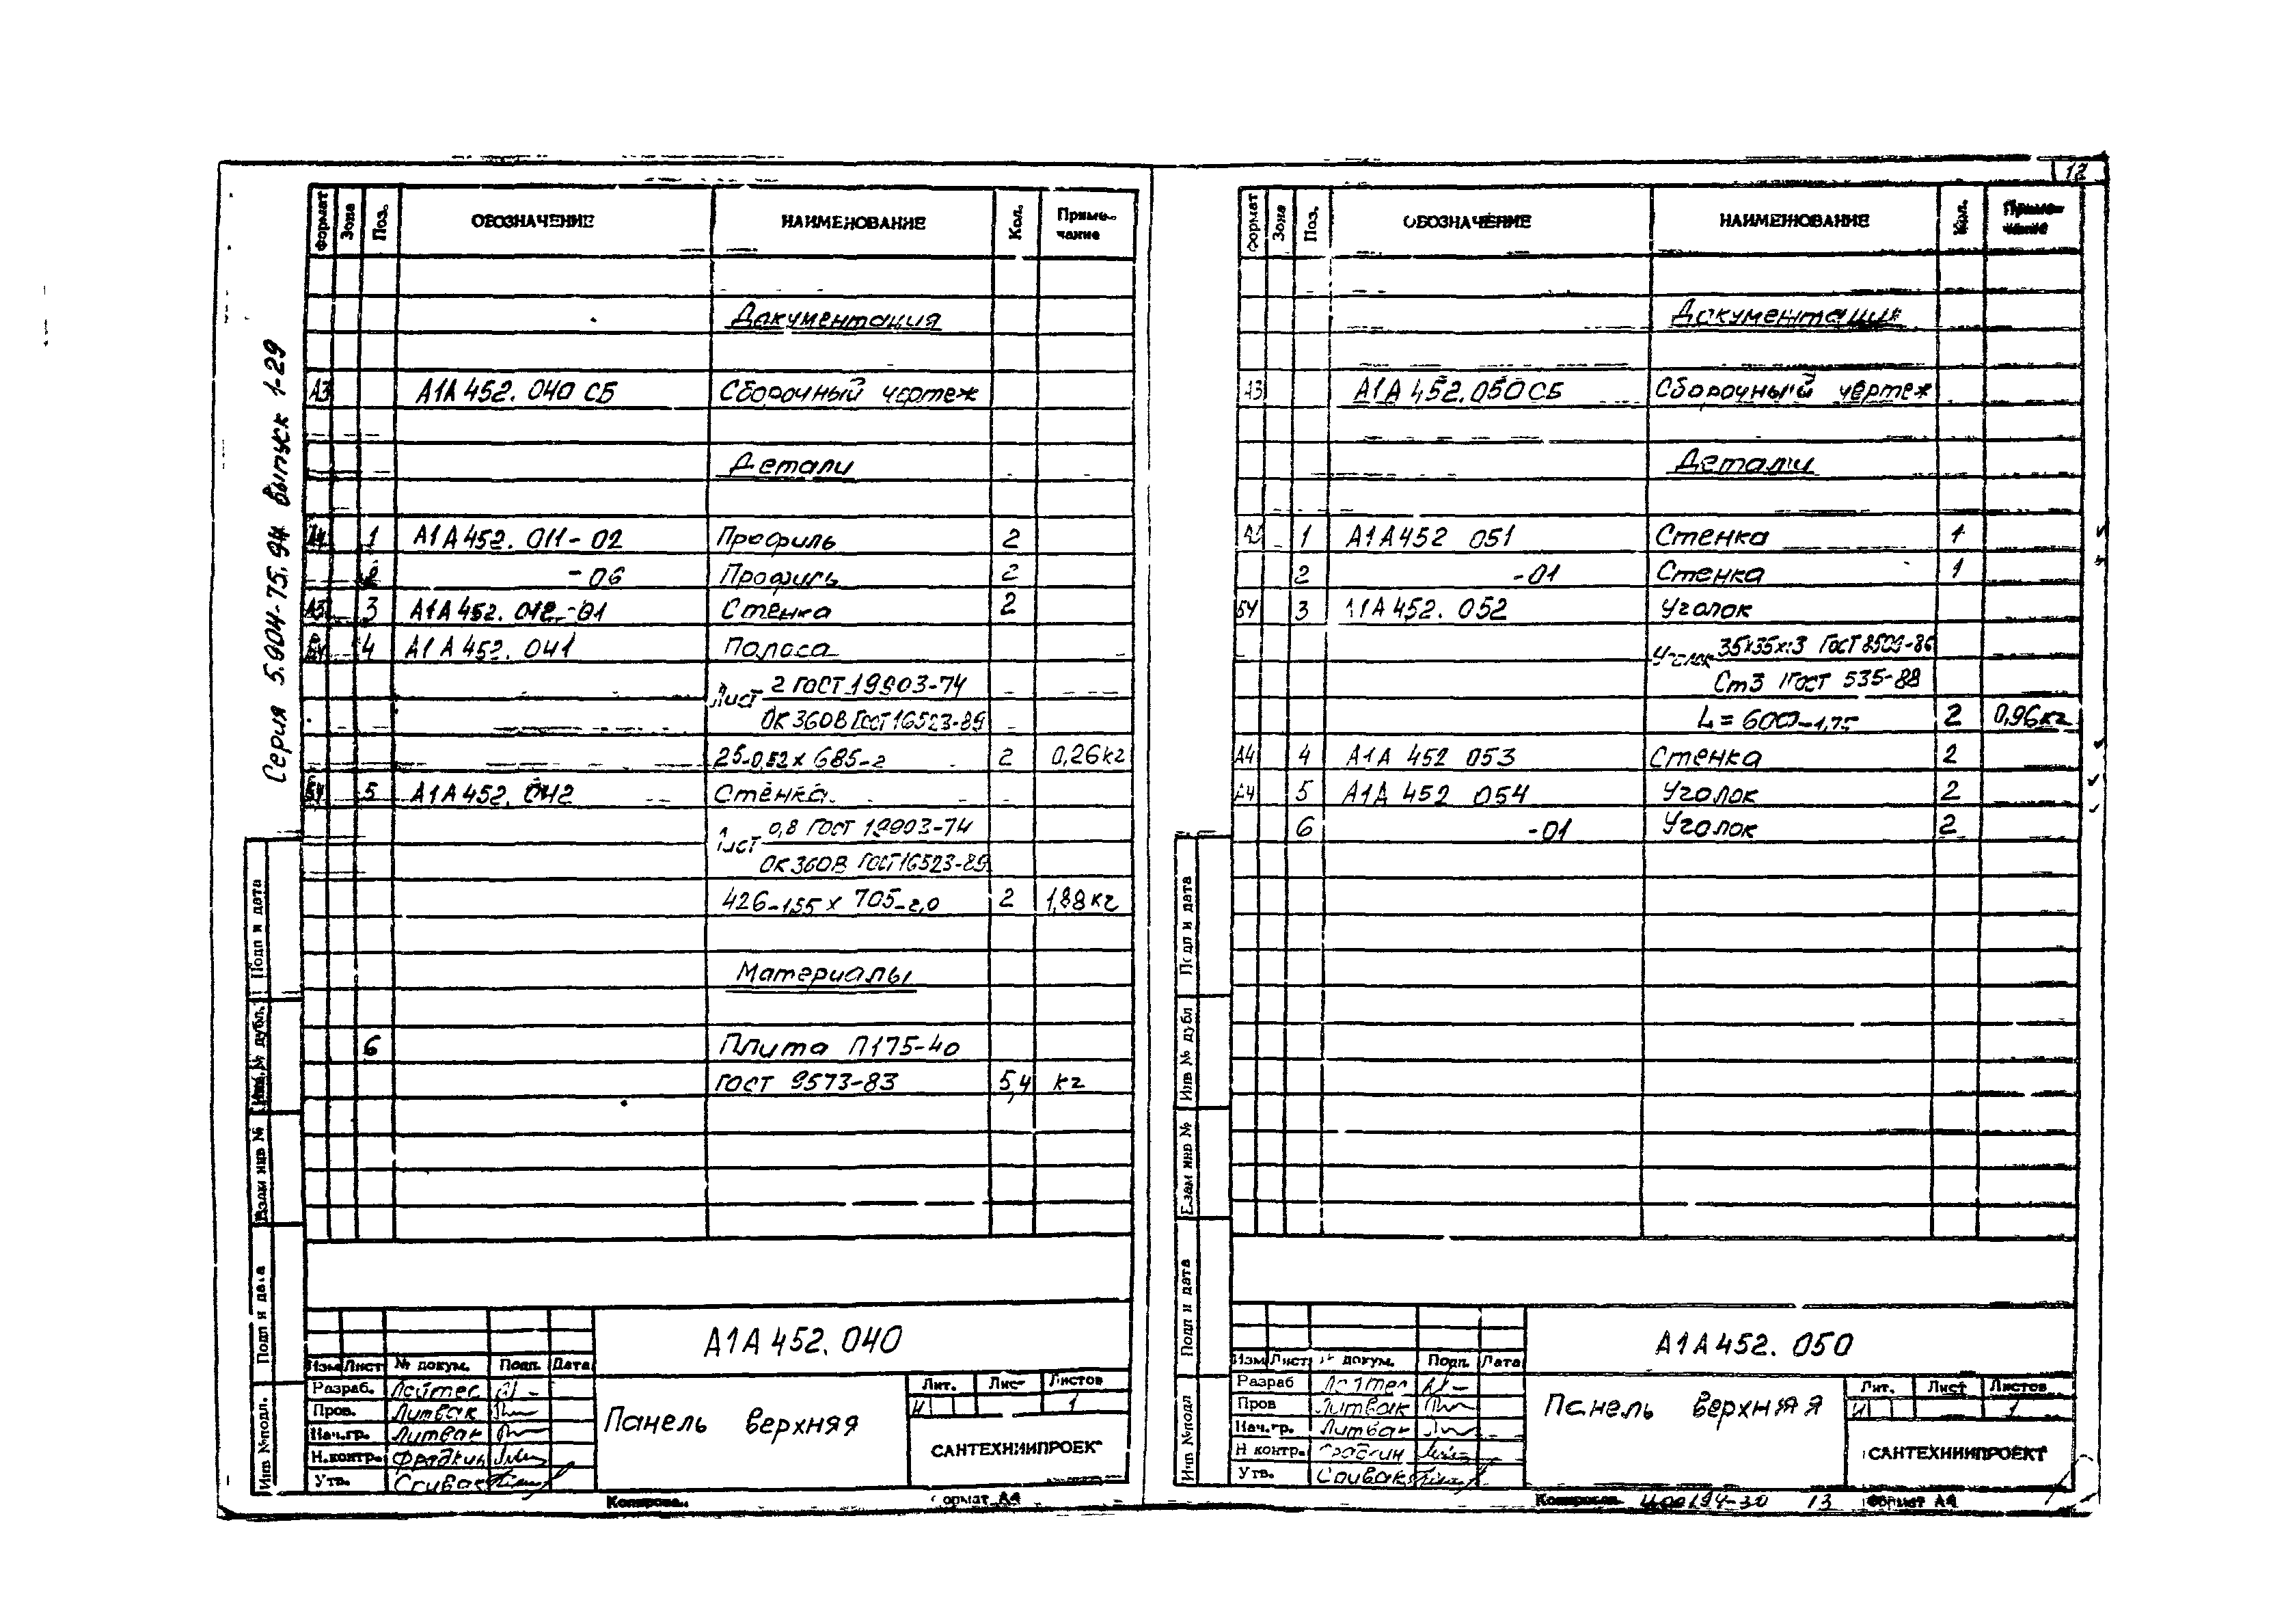 12
Серия 5.904-75.94 Выпуск 1-29
Формат Зона Поз. ОБОЗНАЧЕНИЕ НАИМЕНОВАНИЕ Кол. Приме-
чание
Документация
А3 А1А452.040 СБ Сборочный чертеж
Детали
А4 1 А1А452.011-02 Профиль 2
2 -06 Профиль 2
А3 3 А1А452.012-01 Стенка 2
БЧ 4 А1А452.041 Полоса
Лист 2 ГОСТ 19903-74
ОК360В ГОСТ 16523-89
25-0,52 х 685-2 2 0,26кг
БЧ 5 А1А452.042 Стенка
Лист 0,8 ГОСТ 19903-74
ОК360В ГОСТ 16523-89
426-1,55 х 705-2,0 2 1,88кг
Материалы
6 Плита П175-40
ГОСТ 9573-83 5,4 кг
Подп и дата
Инв.№ дубл.
Взам инв №
Подп и дата
Инв №подл.
А1А452.040
Изм Лист № докум. Подп. Дата
Разраб. Лейтес
Пров. Литвак
Нач.гр. Литвак
Н.контр. Фрадкин
Утв. Спивак
Панель верхняя
Лит. Лист Листов
И 1
САНТЕХНИИПРОЕКТ
Копировал Формат А4
Формат Зона Поз. ОБОЗНАЧЕНИЕ НАИМЕНОВАНИЕ Кол. Приме-
чание
Документация
А3 А1А452.050СБ Сборочный чертеж
Детали
А3 1 А1А452 051 Стенка 1
2 -01 Стенка 1
БЧ 3 А1А452.052 Уголок
Уголок 35х35х3 ГОСТ 8509-86
Ст3 ГОСТ 535-88
L=600-1,75 2 0,96кг
А4 4 А1А 452 053 Стенка 2
А4 5 А1А 452 054 Уголок 2
6 -01 Уголок 2
Подп и дата
Инв № дубл
Взам инв №
Подп и дата
Инв №подл
А1А452.050
Изм Лист № докум. Подп. Дата
Разраб Лейтес
Пров Литвак
Нач.гр. Литвак
Н контр. Фрадкин
Утв. Спивак
Панель верхняя
Лит. Лист Листов
И 1
САНТЕХНИИПРОЕКТ
Копировал 13 Формат А4